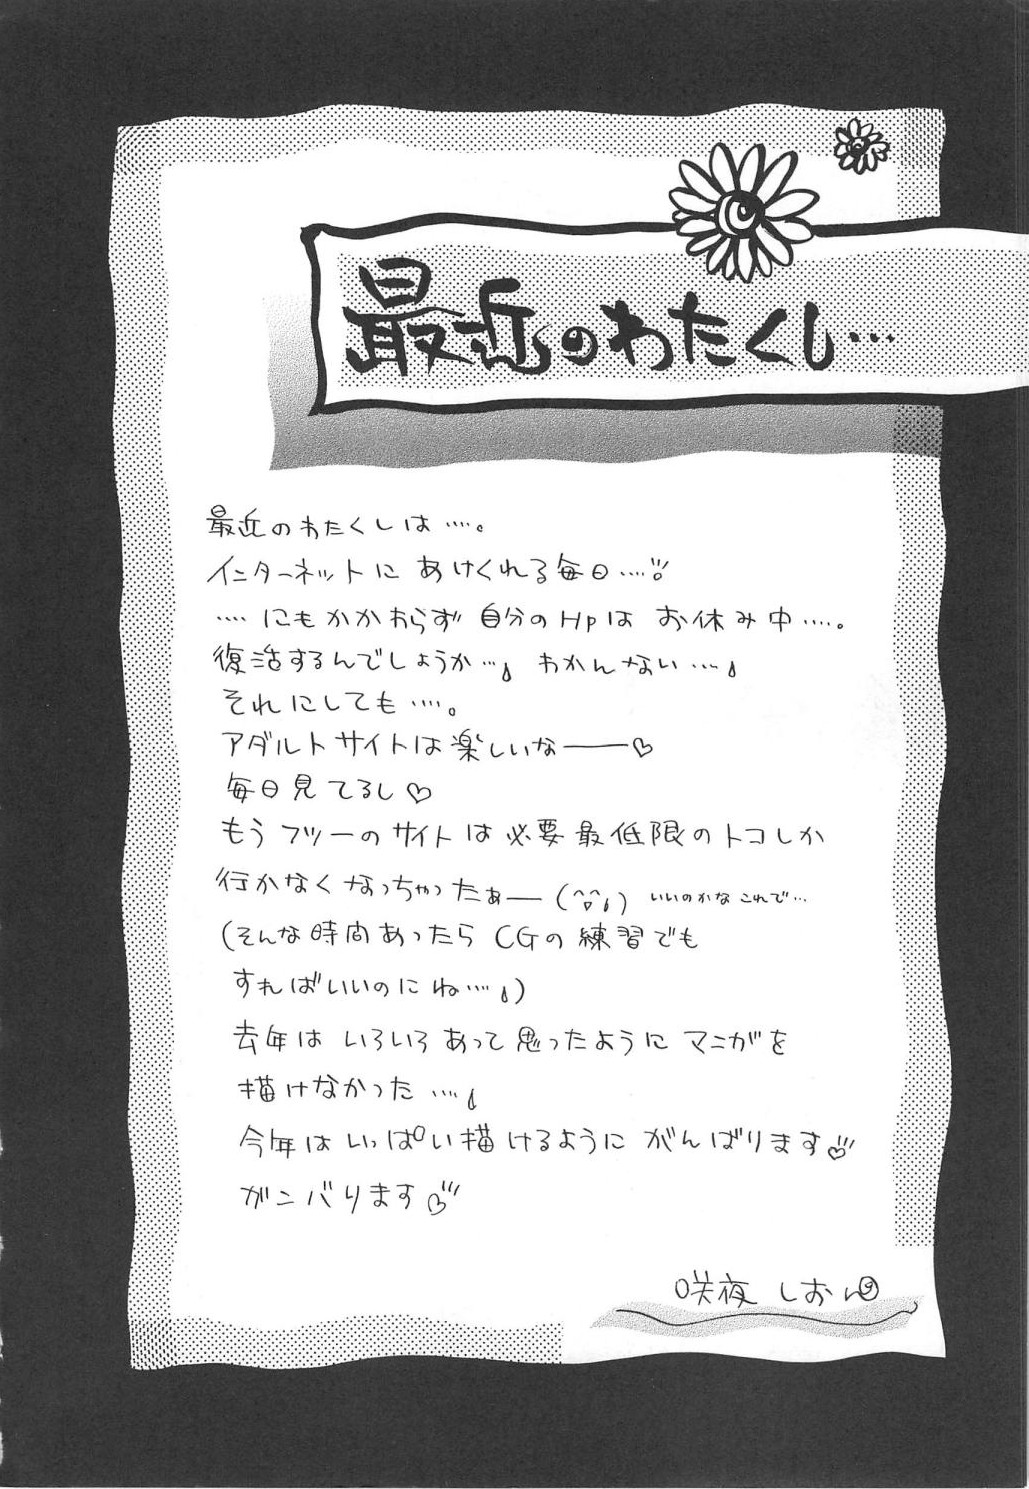 最近のわたくし…
最近のわたくしは‥‥。
インターネットに あけくれる毎日‥‥
‥‥にもかかわらず 自分のHpは お休み中‥‥。
復活するんでしょうか‥ わかんない‥‥
それにしても‥‥。
アダルトサイトは楽しいなーー♡
毎日見てるし♡
もう フツーのサイトは必要最低限のトコしか
行かなくなっちゃったぁー (^▽^;) いいのかな これで…
(そんな時間あったら CGの練習でも
すればいいのにね‥‥)
去年は いろいろあって思ったように マンガを
描けなかった ‥‥
今年は いっぱい描けるように がんばります♡
ガンバります♡
咲夜 しおん